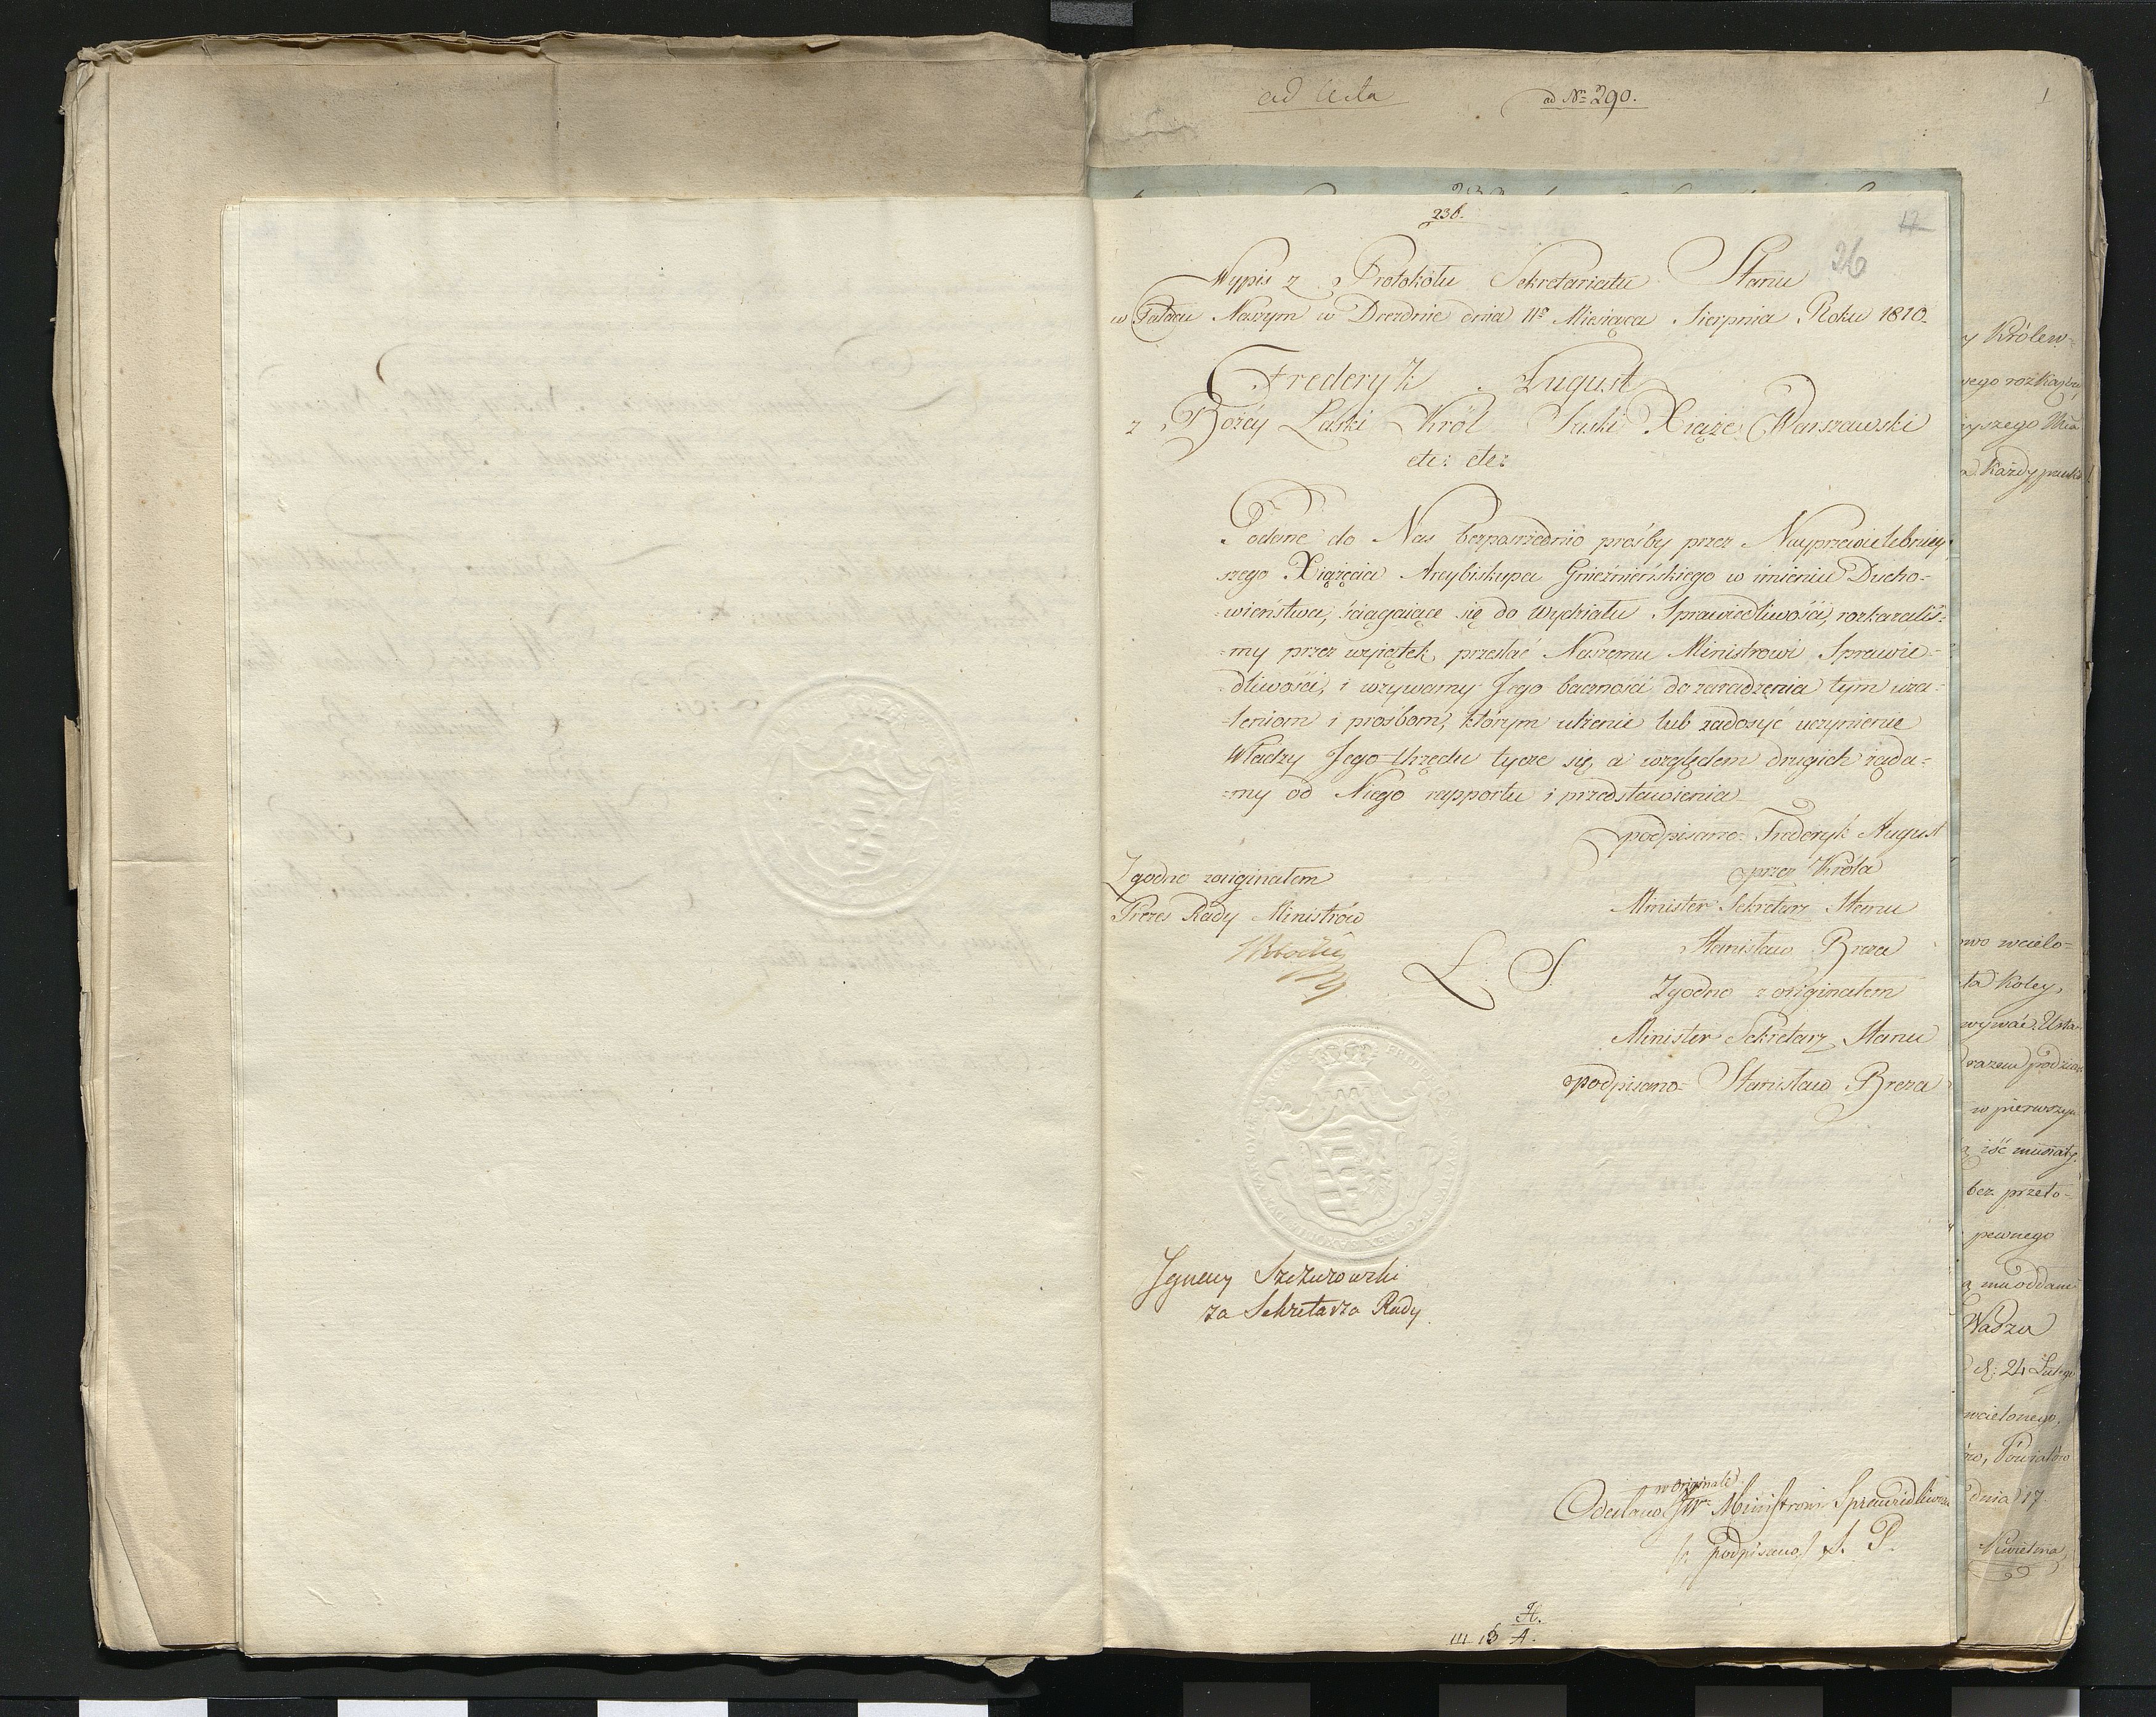 ad Acta
ad Nr 290.
1
236.
17
26
Wypis z Protokołu Sekretariatu Stanu
w Pałacu Naszym w Dreznie dnia 11o Miesiąca Sierpnia Roku 1810
Frederyk August
z Bożéy Łaski Król Saski Xiąże Warszawski
etc: etc:
Podane do Nas bezpośrednio prośby przez Nayprzewielebniey-
szego Xiążęcia Arcybiskupa Gnieźnieńskiego w imieniu Ducho-
-wieństwa, ściągaiące się do Wydziału Sprawiedliwości, rozkazaliś-
-my przez wyiątek przesłać Naszemu Ministrowi Sprawie-
-dliwości, i wzywamy Jego baczności do zaradzenia tym uża-
-leniom i prośbom, którym ulżenie lub zadosyć uczynienie
Władzy Jego Urzędu tycze się, a względem drugich żąda-
-my od Niego rapportu i przedstawienia
podpisano: Frederyk August
przez Króla
Minister Sekretarz Stanu
Stanisław Breza
Zgodno z originałem
Minister Sekretarz Stanu
podpisano: Stanisław Breza
Zgodno z originałem
Prezes Rady Ministrów
L. S.
Ignacy Szczurowski
za Sekretarza Rady.
w originale
Odesłano JW. Ministrowi Sprawiedliwości
/: podpisano / S. P.
H.
III 13 A.
y Królew-
wego rozkazu,
a Każdy
owo wcielo-
ta Koley,
razem
w pierwszym
iść musiały.
bez przeło-
pewnego
a mu oddane
Wadzu
d: 24 Lutego
wcielonego,
ów, Powiatów
dnia 17
Kwietnia